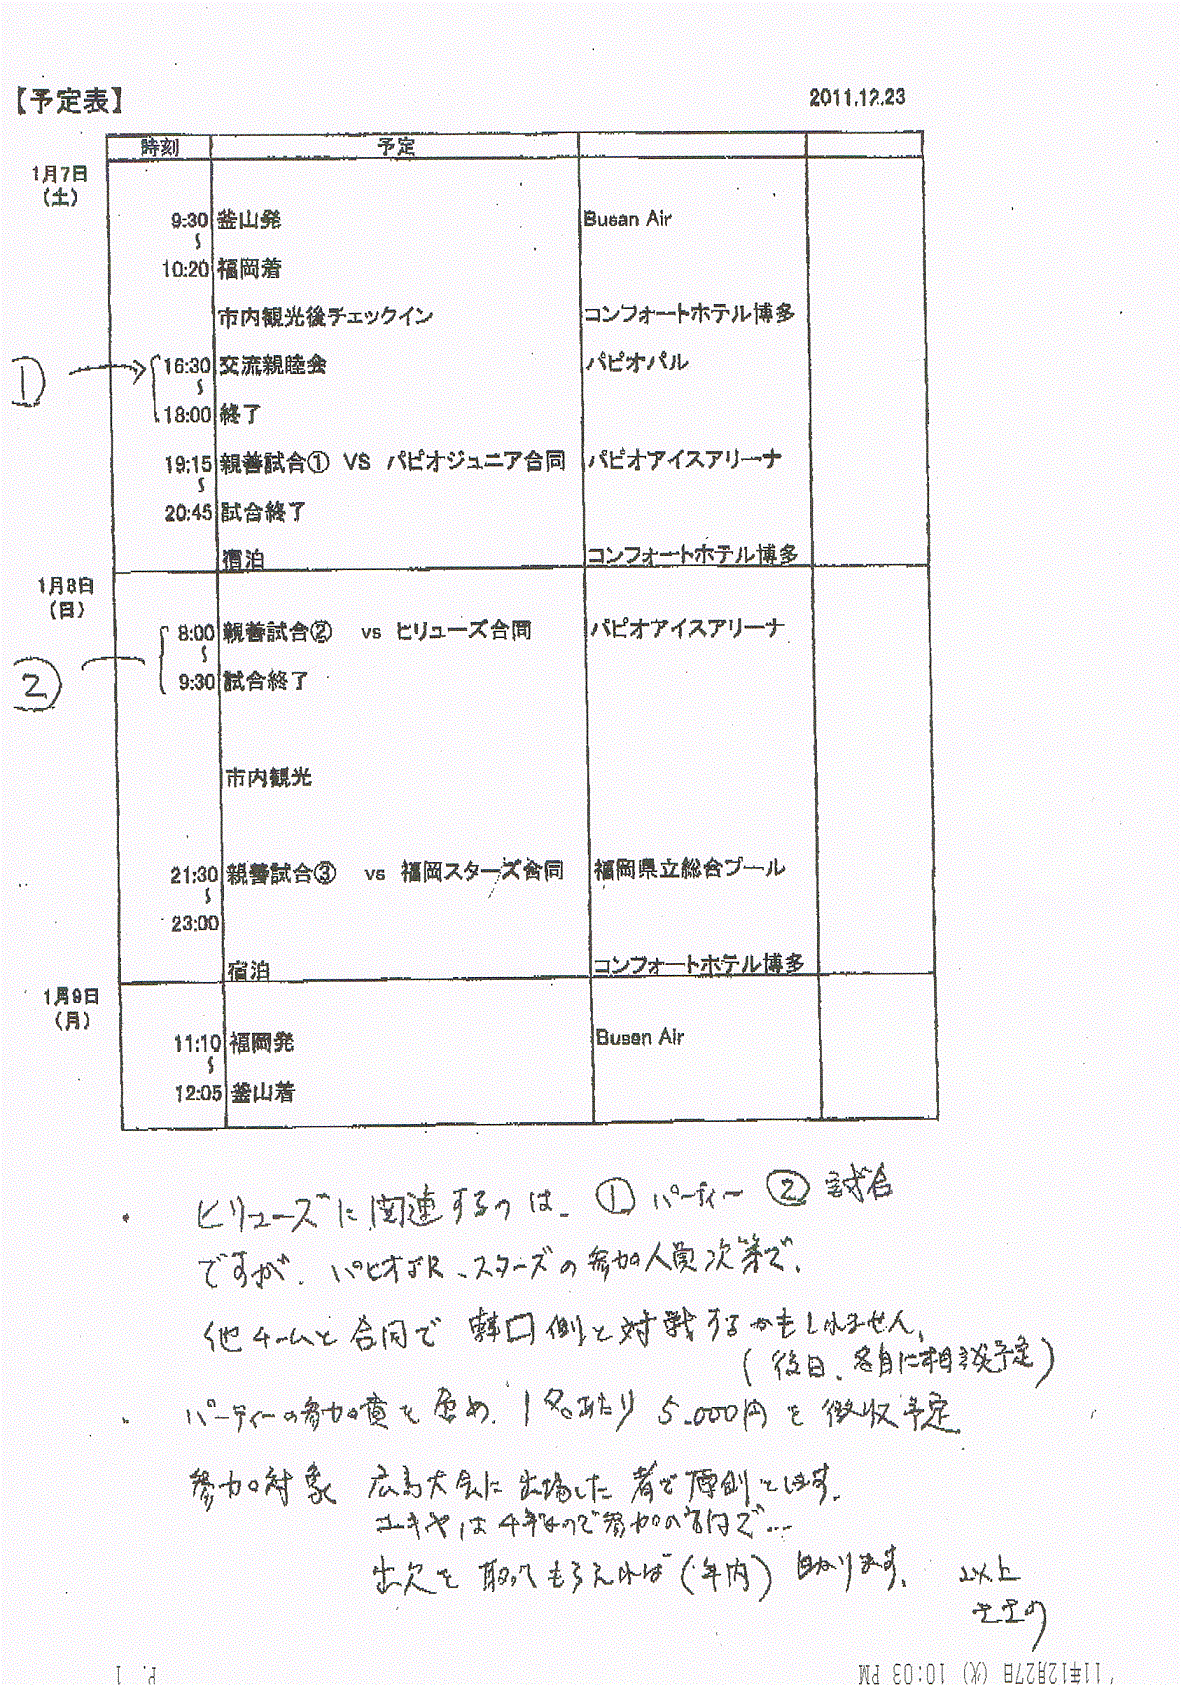 【予定表】 2011.12.23
時刻 予定
1月7日
(土)
9:30 釜山発 Busan Air
~
10:20 福岡着
市内観光後チェックイン コンフォートホテル博多
① 16:30 交流親睦会 パピオパル
~
18:00 終了
19:15 親善試合① VS パピオジュニア合同 パピオアイスアリーナ
~
20:45 試合終了
宿泊 コンフォートホテル博多
1月8日
(日)
8:00 親善試合② vs ヒリューズ合同 パピオアイスアリーナ
~
② 9:30 試合終了
市内観光
21:30 親善試合③ vs 福岡スターズ合同 福岡県立総合プール
~
23:00
宿泊 コンフォートホテル博多
1月9日
(月)
11:10 福岡発 Busan Air
~
12:05 釜山着
・ ヒリューズに関連するのは、①パーティー ②試合
ですが、パピオJR、スターズの参加人員次第で、
他チームと合同で 韓国側と対戦するかもしれません。
(後日、各自に相談予定)
・ パーティーの参加費を含め、1名あたり 5.000円を徴収予定
参加対象 広島大会に出場した者で原則とします。
ユキヤは4年なので参加の方向で…
出欠を取ってもらえれば(年内)助かります。 以上
'11年12月27日(火) 10:03 PM P. 1